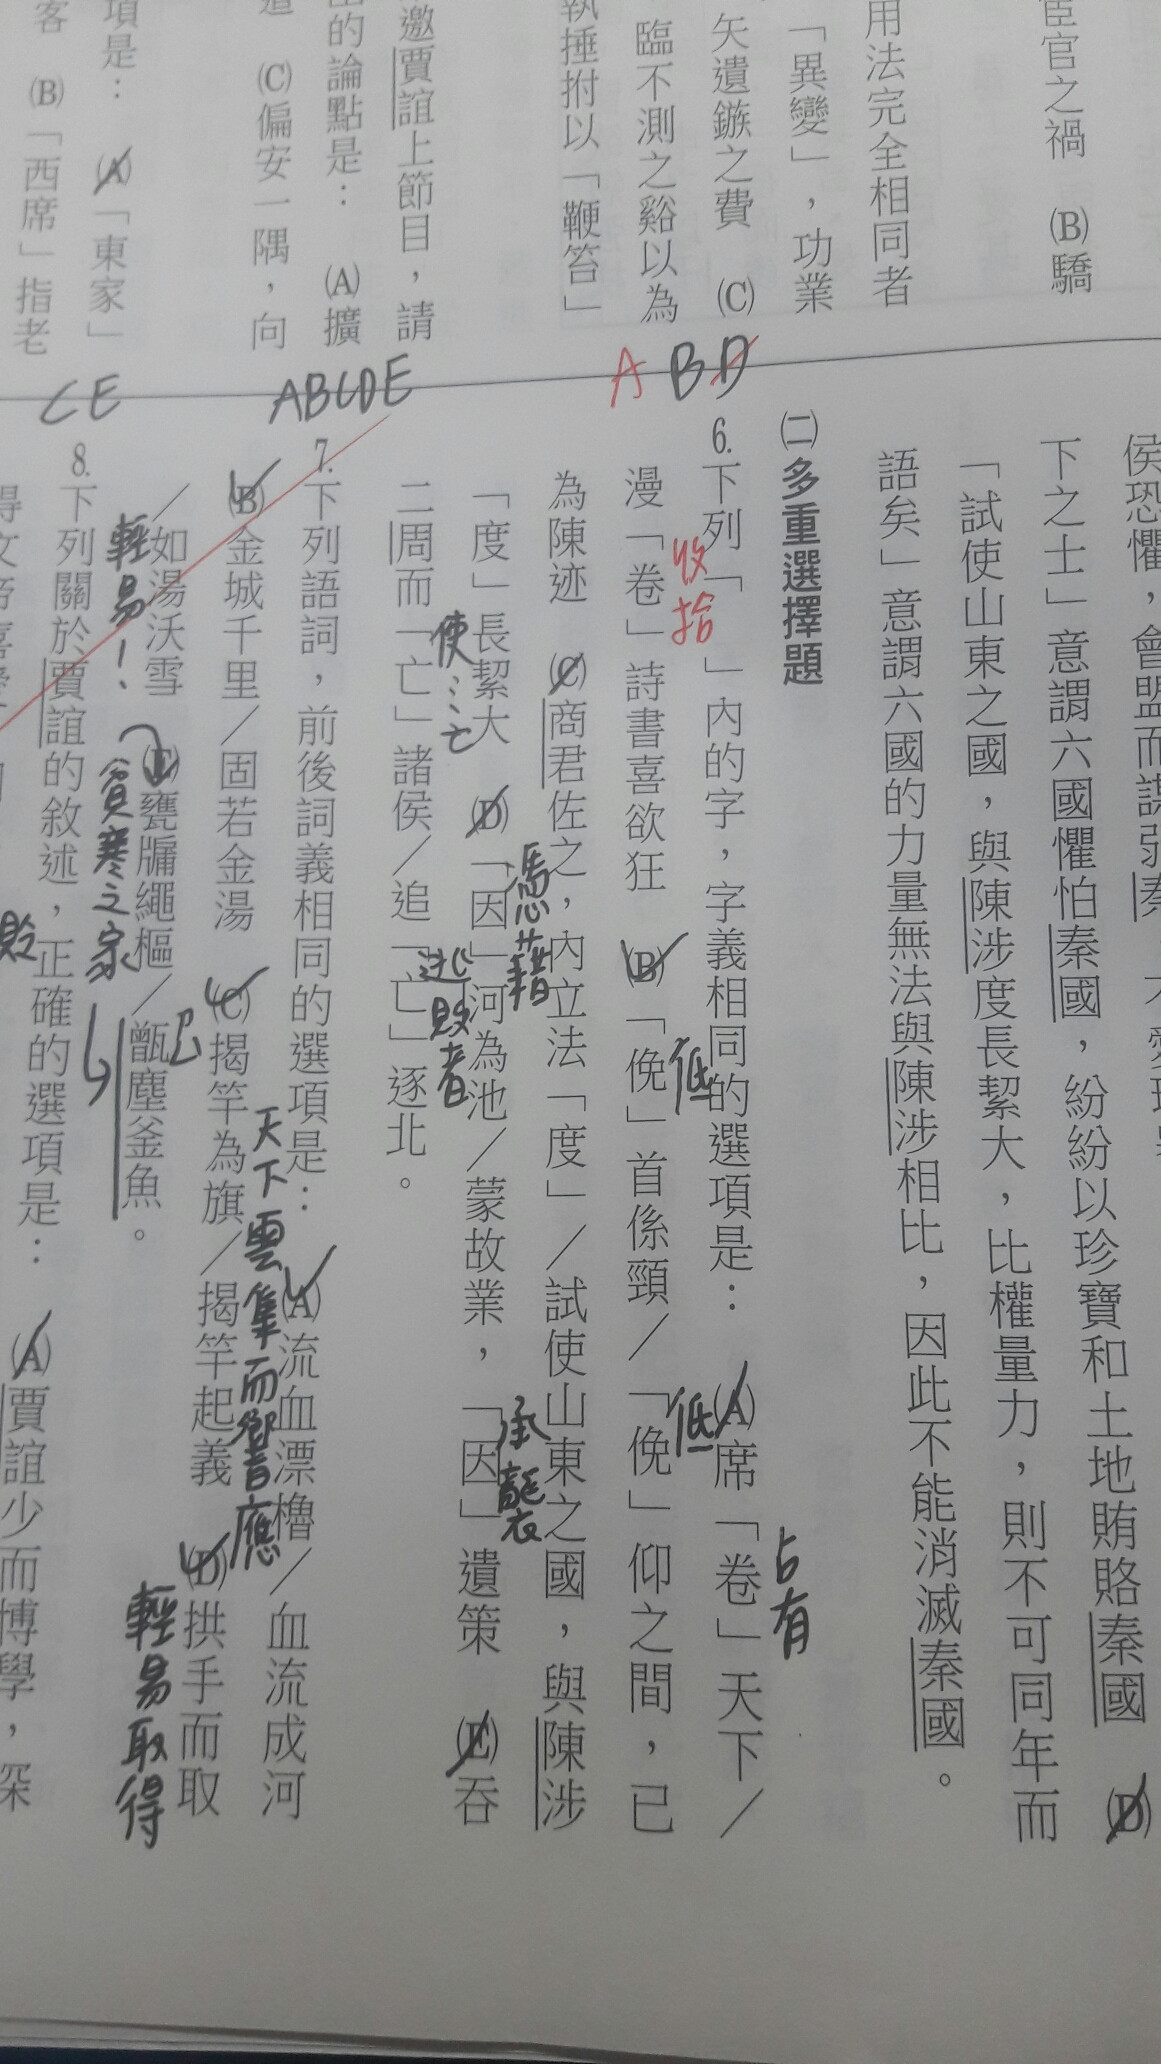 宦官之禍　(B)驕
用法完全相同者
「異變」，功業
矢遺鏃之費　(C)
臨不測之谿以為
執捶拊以「鞭笞」
邀賈誼上節目，請
的論點是：　(A)擴
(C)偏安一隅，向
項是：　(A)「東家」
客　(B)「西席」指老
侯恐懼，會盟而謀弱秦
下之士」意謂六國懼怕秦國，紛紛以珍寶和土地賄賂秦國　(D)
「試使山東之國，與陳涉度長絜大，比權量力，則不可同年而
語矣」意謂六國的力量無法與陳涉相比，因此不能消滅秦國。
㈡多重選擇題
A B D
6.下列「　」內的字，字義相同的選項是：　(A)席「卷」天下／
占有
漫「卷」詩書喜欲狂　(B)「俛」首係頸／「俛」仰之間，已
收拾
低
低
為陳迹　(C)商君佐之，內立法「度」／試使山東之國，與陳涉
「度」長絜大　(D)「因」河為池／蒙故業，「因」遺策　(E)吞
憑藉
承襲
二周而「亡」諸侯／追「亡」逐北。
使…亡
逃敗者
ABCDE
7.下列語詞，前後詞義相同的選項是：　(A)流血漂櫓／血流成河
(B)金城千里／固若金湯　(C)揭竿為旗／揭竿起義　(D)拱手而取
天下雲集而響應
／如湯沃雪　(E)甕牖繩樞／甑塵釜魚。
輕易取得
輕易！
貧寒之家
CE
8.下列關於賈誼的敘述，正確的選項是：　(A)賈誼少而博學，深